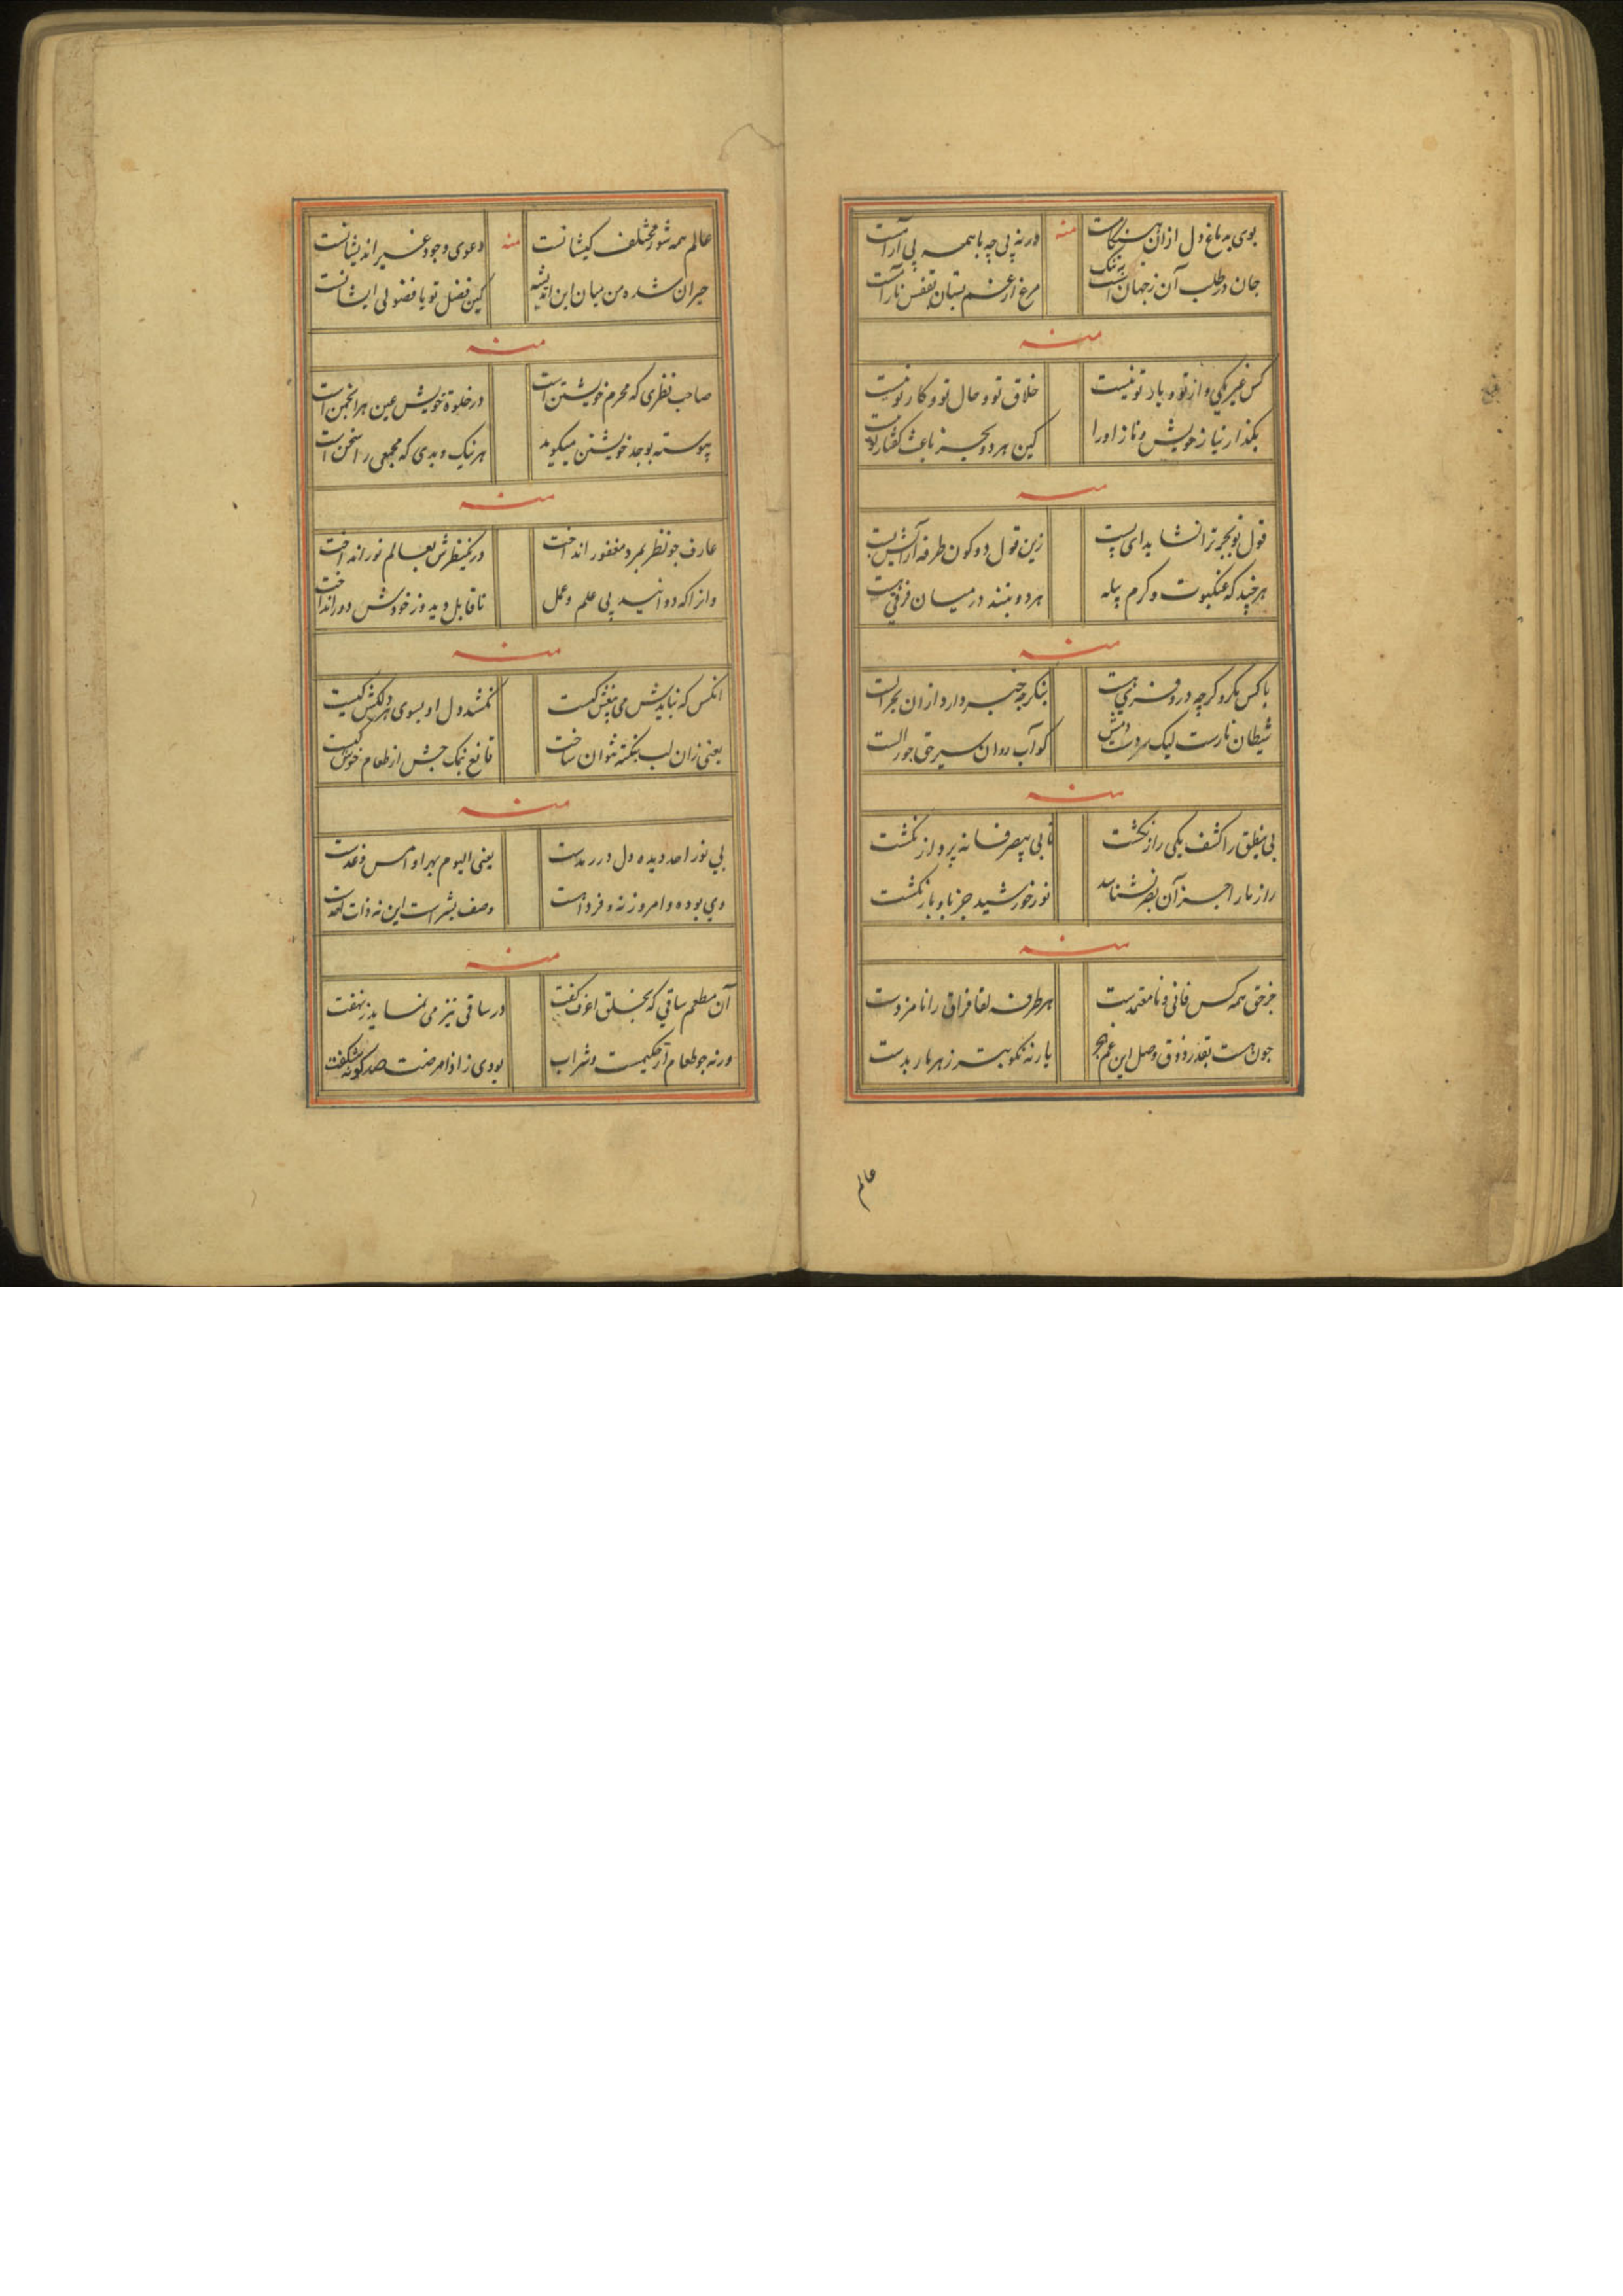 بوی به باغ دل ازان
منه
ورنه پی چه با همه پی
جان در طلب آن ز جهان
مرغ از غم بستان بقفس
منه
کس غیر یکی و از تو و یاد تو نیست
خلاق تو و حال تو و کار تو نیست
بکذار نیاز خویش و ناز او را
کین هر دو بجز باعث گفتار تو نیست
منه
قول تو بجز ترا نشاید ای پست
زین قول دو کون طرفه
هرچند که عنکبوت و کرم پیله
هر دو تنند در میان فرقی هست
منه
با کس مکرو کرچه درو
بنکر چه خبر دارد ازان
شیطان نارست لیک
کو آب روان
منه
بی منطق را کشف یکی راز نکشت
تا بی پر و از نکشت
راز ما را جز آن بصر نشناسد
نور خورشید جز باو باز نکشت
منه
جز حق همه کس فانی و نامعتمدست
هر طرف لقا فراق را نامزدست
چون هست بقدر ذوق وصل این غم هجر
یار نه نکو بتر ز هر مار بدست
عالم
عالم همه شور مختلف کیشانست
منه
دعوی وجود غیر اندیشانست
حیران شده من میان این اندیشه
کین فضل تو یا فضولی ایشانست
منه
صاحب نظری که محرم خویشتن است
در خلوة خویش عین هر انجمن است
پیوسته بوجد خویشتن میکوید
هر نیک و بدی که مجمعی را سخن است
منه
عارف چو نظر بمرد مغفور انداخت
در یکنظرش بعالم نور انداخت
و انرا که دوانید پی علم و عمل
ناقابل دید و ز خودش دور انداخت
منه
آنکس که نبایدش می کیست
نکشد دل او بسوی هر دلکش کیست
یعنی زان لب بنکته نتوان ساخت
قانع بنمک چش از طعام خوش کیست
منه
بی نور احد دیده دل در رمدست
یعنی الیوم بهر او امس و غدست
دی بوده و امروز نه و فردا هست
وصف بشر است این نه ذات احدست
منه
آن مطعم ساقی که بخلق
در ساقی نیز می نماید ز نهفت
ورنه چو طعام کیست و شراب
بودی ز اذا مرضت صد کونه شکفت